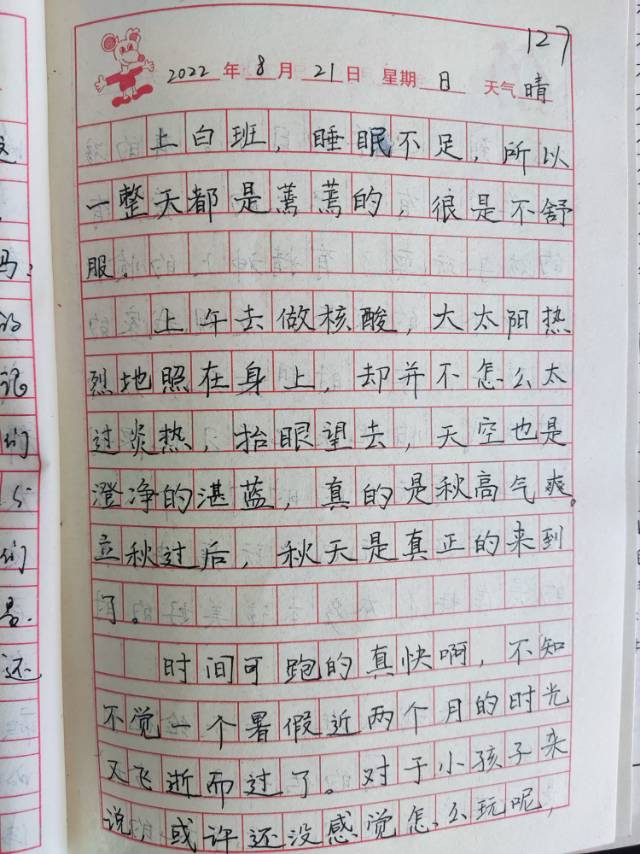 127
2022年8月21日 星期日 天气晴
上白班，睡眠不足，所以
一整天都是蔫蔫的，很是不舒
服。
上午去做核酸，大太阳热
烈地照在身上，却并不怎么太
过炎热，抬眼望去，天空也是
澄净的湛蓝，真的是秋高气爽。
立秋过后，秋天是真正的来到
了。
时间可跑的真快啊，不知
不觉一个暑假近两个月的时光
又飞逝而过了。对于小孩子来
说，或许还没感觉怎么玩呢，